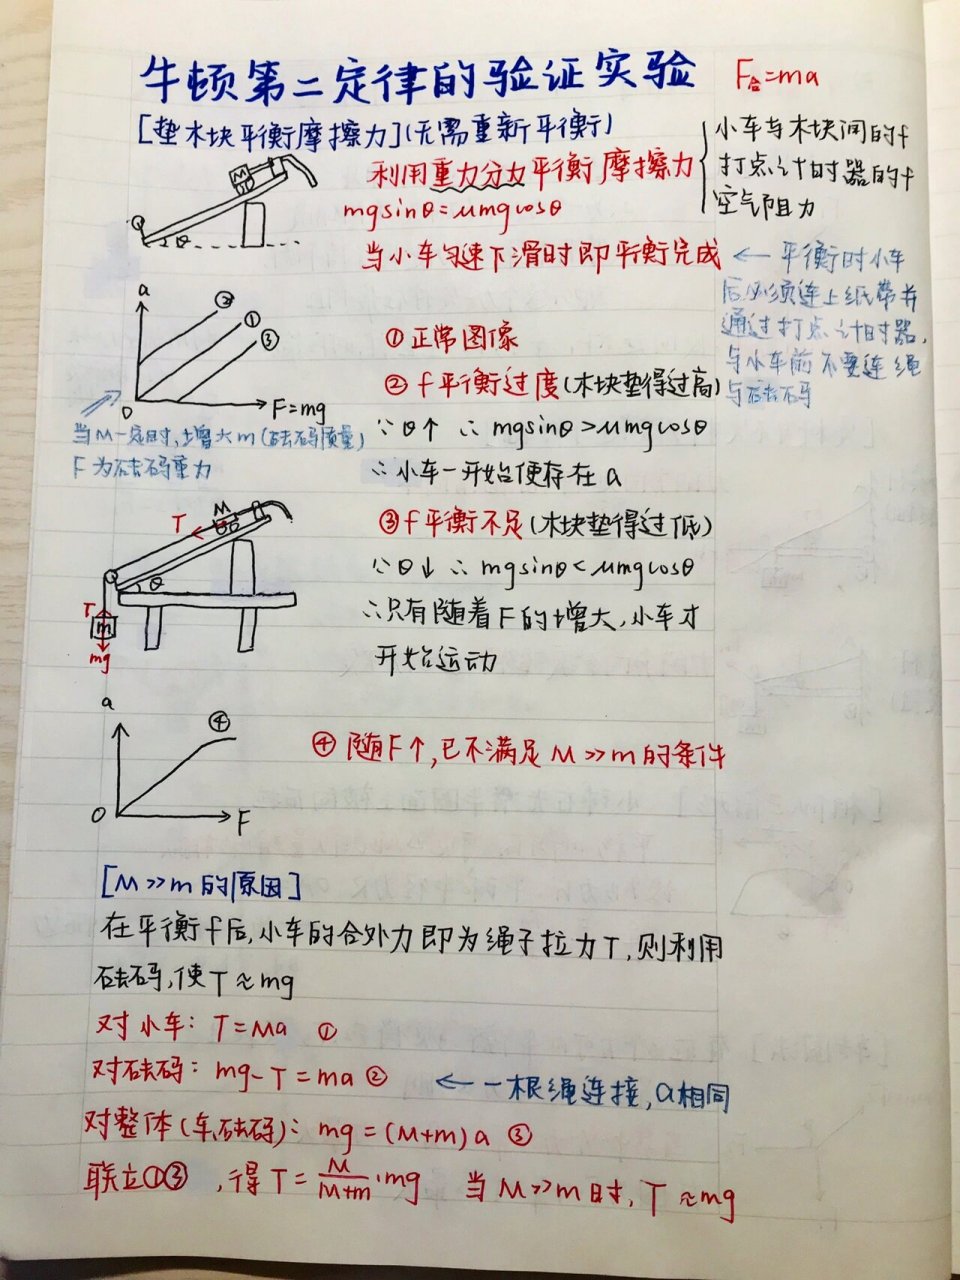 牛顿第二定律的验证实验
F合=ma
[垫木块平衡摩擦力](无需重新平衡)
M
θ
利用重力分力平衡摩擦力
小车与木块间的f
打点计时器的f
空气阻力
mgsinθ=μmgcosθ
当小车匀速下滑时即平衡完成
← 平衡时小车
后必须连上纸带并
通过打点计时器,
与小车前不要连绳
与砝码
a
②
①
③
0
F=mg
当M一定时,增大m(砝码质量)
F为砝码重力
①正常图像
②f平衡过度(木块垫得过高)
∵θ↑ ∴ mgsinθ>μmgcosθ
∴小车一开始便存在a
M
T
θ
T
m
mg
③f平衡不足(木块垫得过低)
∵θ↓ ∴ mgsinθ<μmgcosθ
∴只有随着F的增大,小车才
开始运动
a
④
O
F
④ 随F↑,已不满足M>>m的条件
[M>>m的原因]
在平衡f后,小车的合外力即为绳子拉力T,则利用
砝码,使T≈mg
对小车: T=Ma ①
对砝码: mg-T=ma ②
← 一根绳连接,a相同
对整体(车,砝码): mg=(M+m)a ③
联立①③ ,得 T=M/(M+m)·mg 当M>>m时, T≈mg